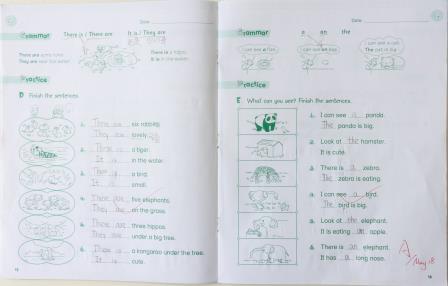 Date
Grammar
There is / There are
It is / They are
There is a hippo.
It is in the water.
Practice
D Finish the sentences.
1. There are six rabbits.
They are lovely.
2. There is a tiger.
It is in the water.
3. There is a bird.
It is small.
4. There are five elephants.
They are on the grass.
5. There are three hippos.
They are under a big tree.
6. There is a kangaroo under the tree.
It is cute.
Date
Grammar
a an the
I can see a
I can see an
I can see a cat.
The cat is big.
Practice
E What can you see? Finish the sentences.
1. I can see a panda.
The panda is big.
2. Look at the hamster.
It is cute.
3. There is a zebra.
The zebra is eating.
4. I can see a bird.
The bird is big.
5. Look at the elephant.
It is eating an apple.
6. There is an elephant.
It has a long nose.
A
May 18